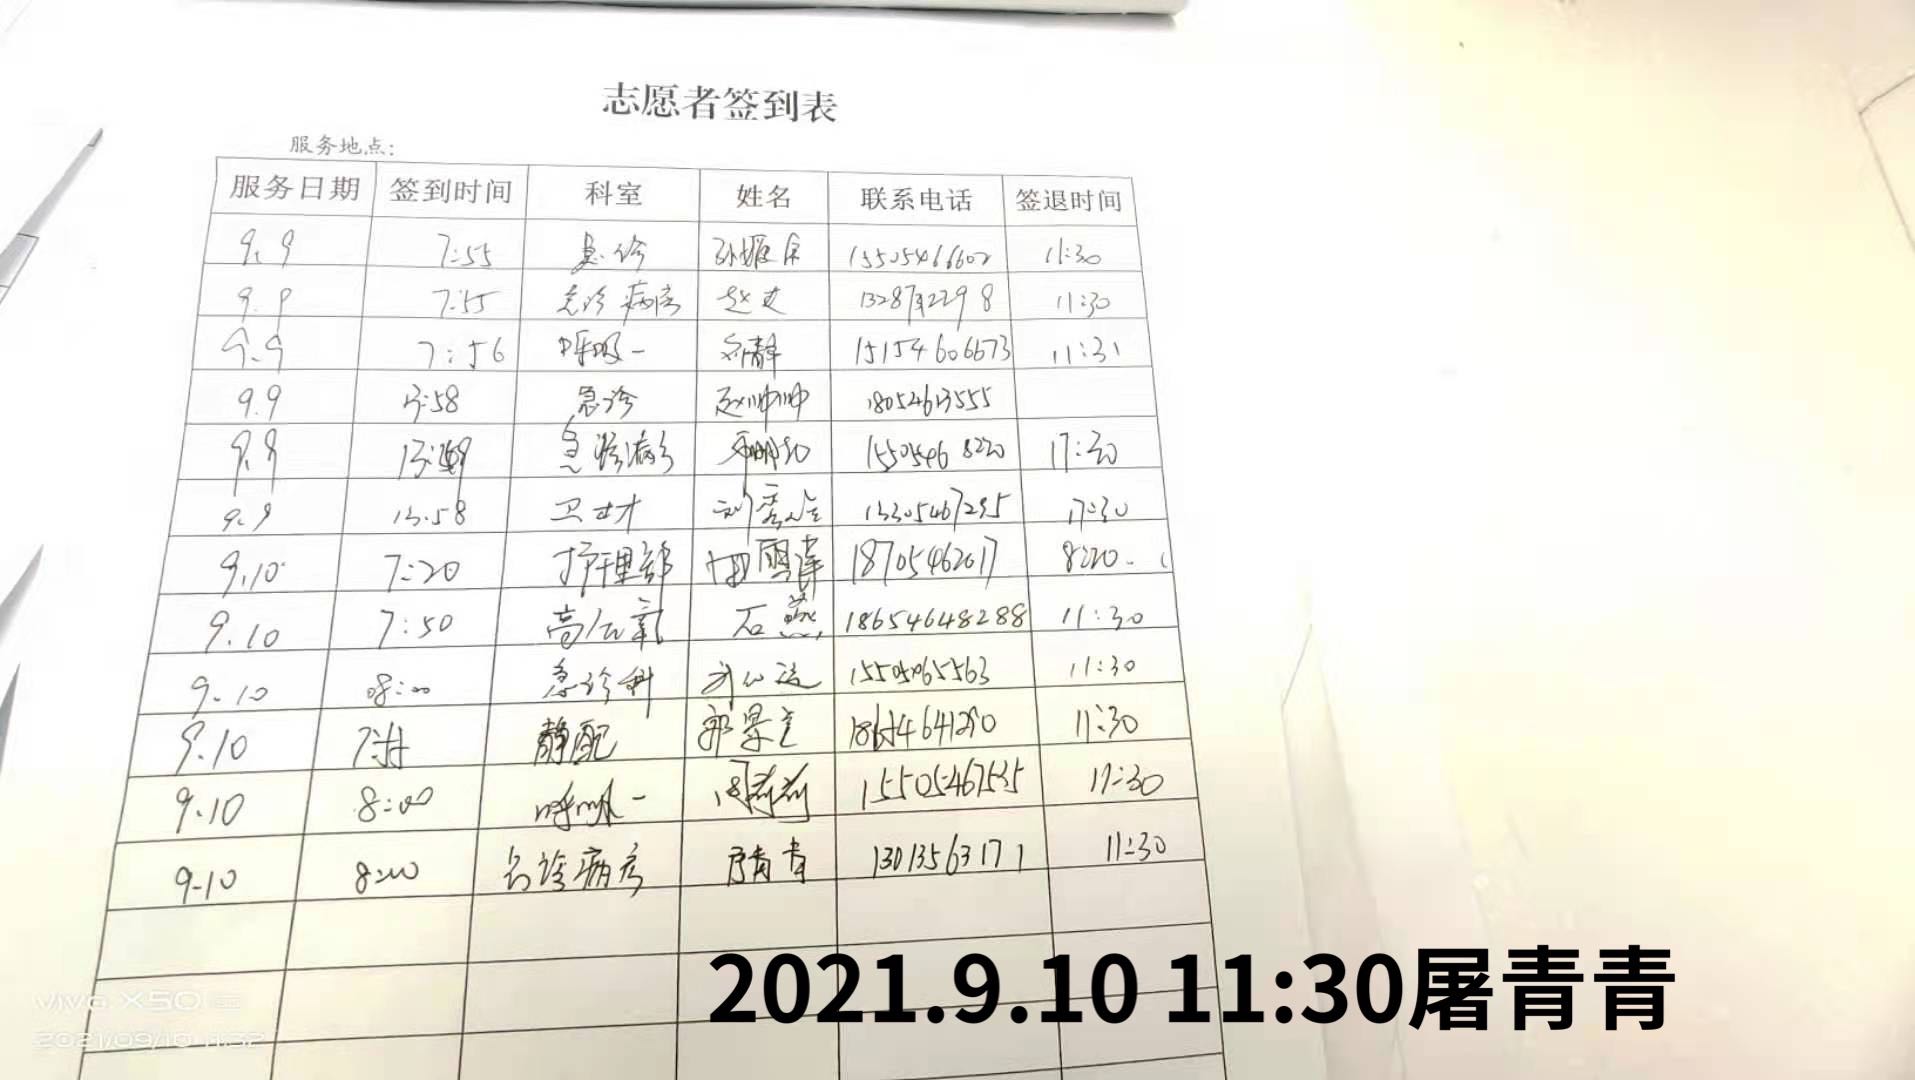 志愿者签到表
服务地点:
服务日期 签到时间 科室 姓名 联系电话 签退时间
9.9 7:55 急诊 15505466602 11:30
9.9 7:55 急诊病房 赵 11:30
9.9 7:56 呼吸一 静 15154606673 11:31
9.9 13:58 急诊 赵帅帅 18054613555
9.9 急诊病房 15505468220 17:30
9.9 13:58 卫士才 刘秀 13305467295 17:30
9.10 7:20 护理部 田雪萍 18705462017 8:20
9.10 7:50 高压氧 石燕 18654648288 11:30
9.10 08:00 急诊科 15505465563 11:30
9.10 静配 郭景 11:30
9.10 8:00 呼吸一 周莉莉 15505467535 11:30
9.10 8:00 急诊病房 屠青青 13013563171 11:30
2021.9.10 11:30屠青青
vivo X50
2021/09/10 11:32